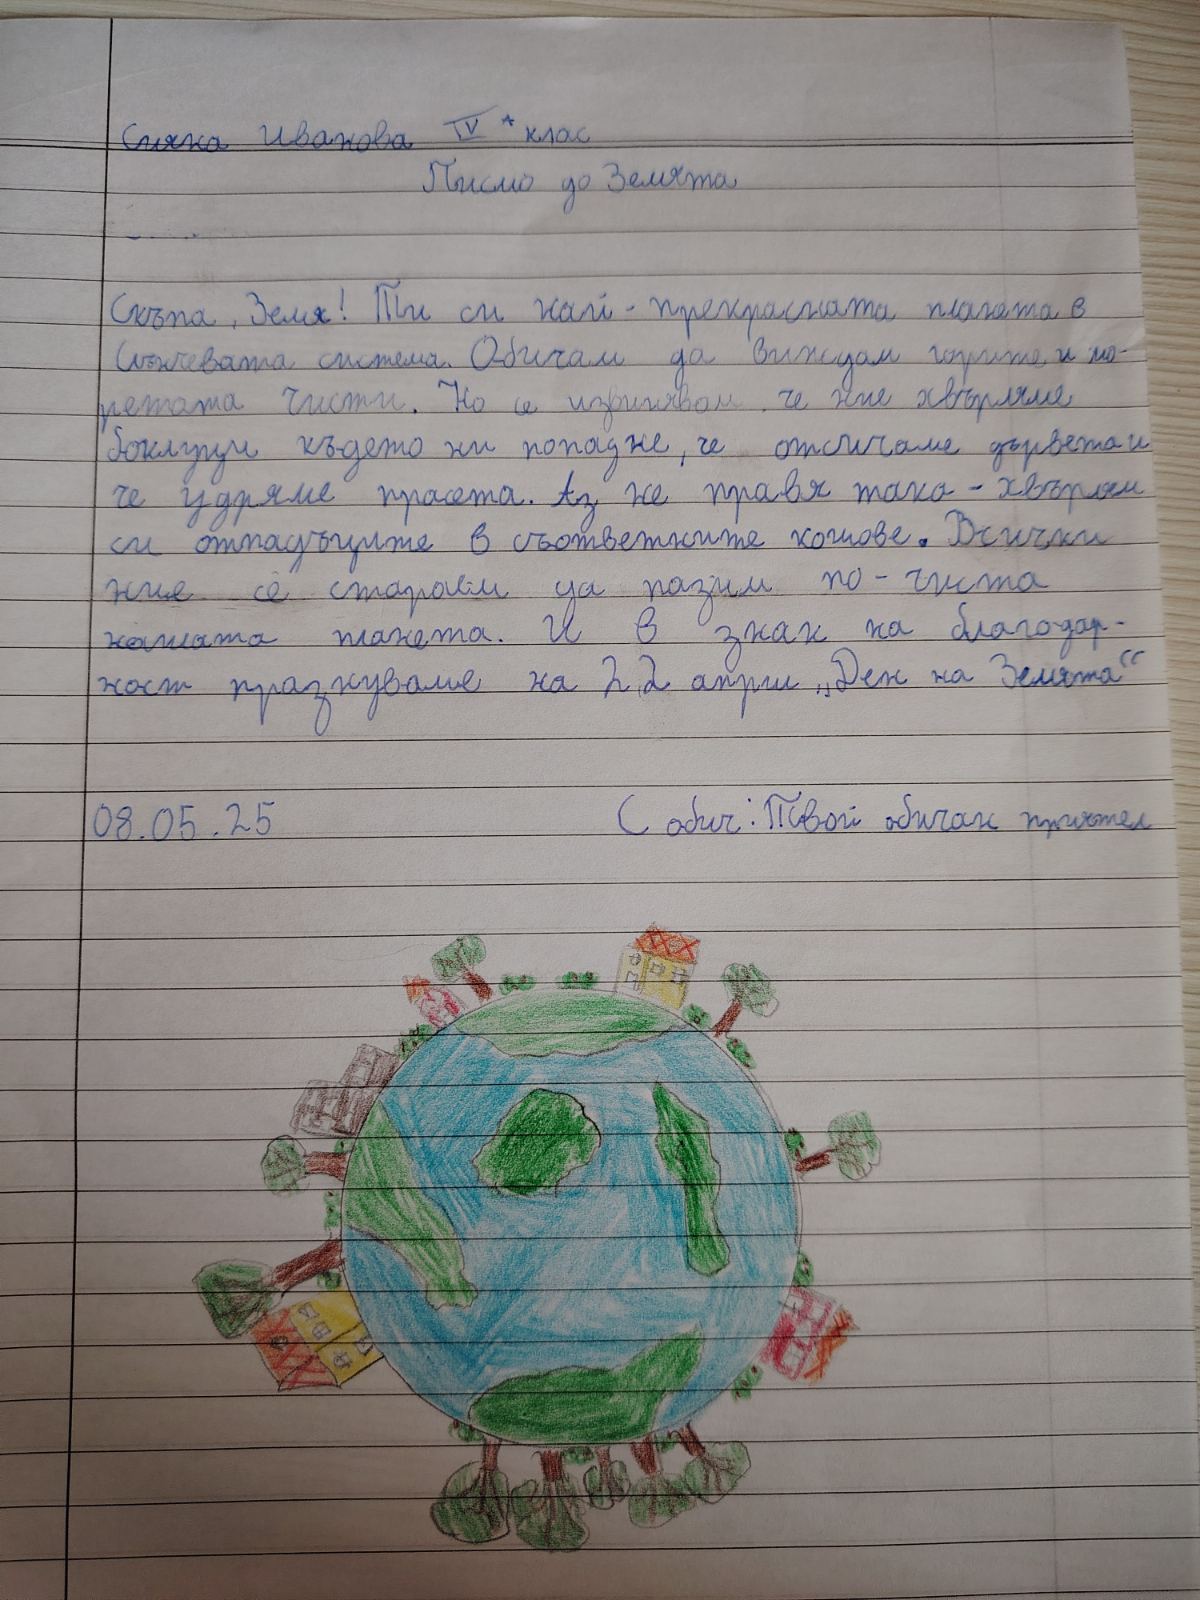 Сияна Иванова IV А клас
Писмо до Земята
Скъпа, Земя! Ти си най-прекрасната планета в
Слънчевата система. Обичам да виждам горите и мо-
ретата чисти. Но се извинявам, че ние хвърляме
боклуци където ни попадне, че отсичаме дървета и
че удряме прасета. Аз не правя така - хвърлям
си отпадъците в съответните кошове. Всички
ние се стараем да пазим по-чиста
нашата планета. И в знак на благодар-
ност празнуваме на 22 април „Ден на Земята“
08.05.25 С обич: Твой обичан приятел